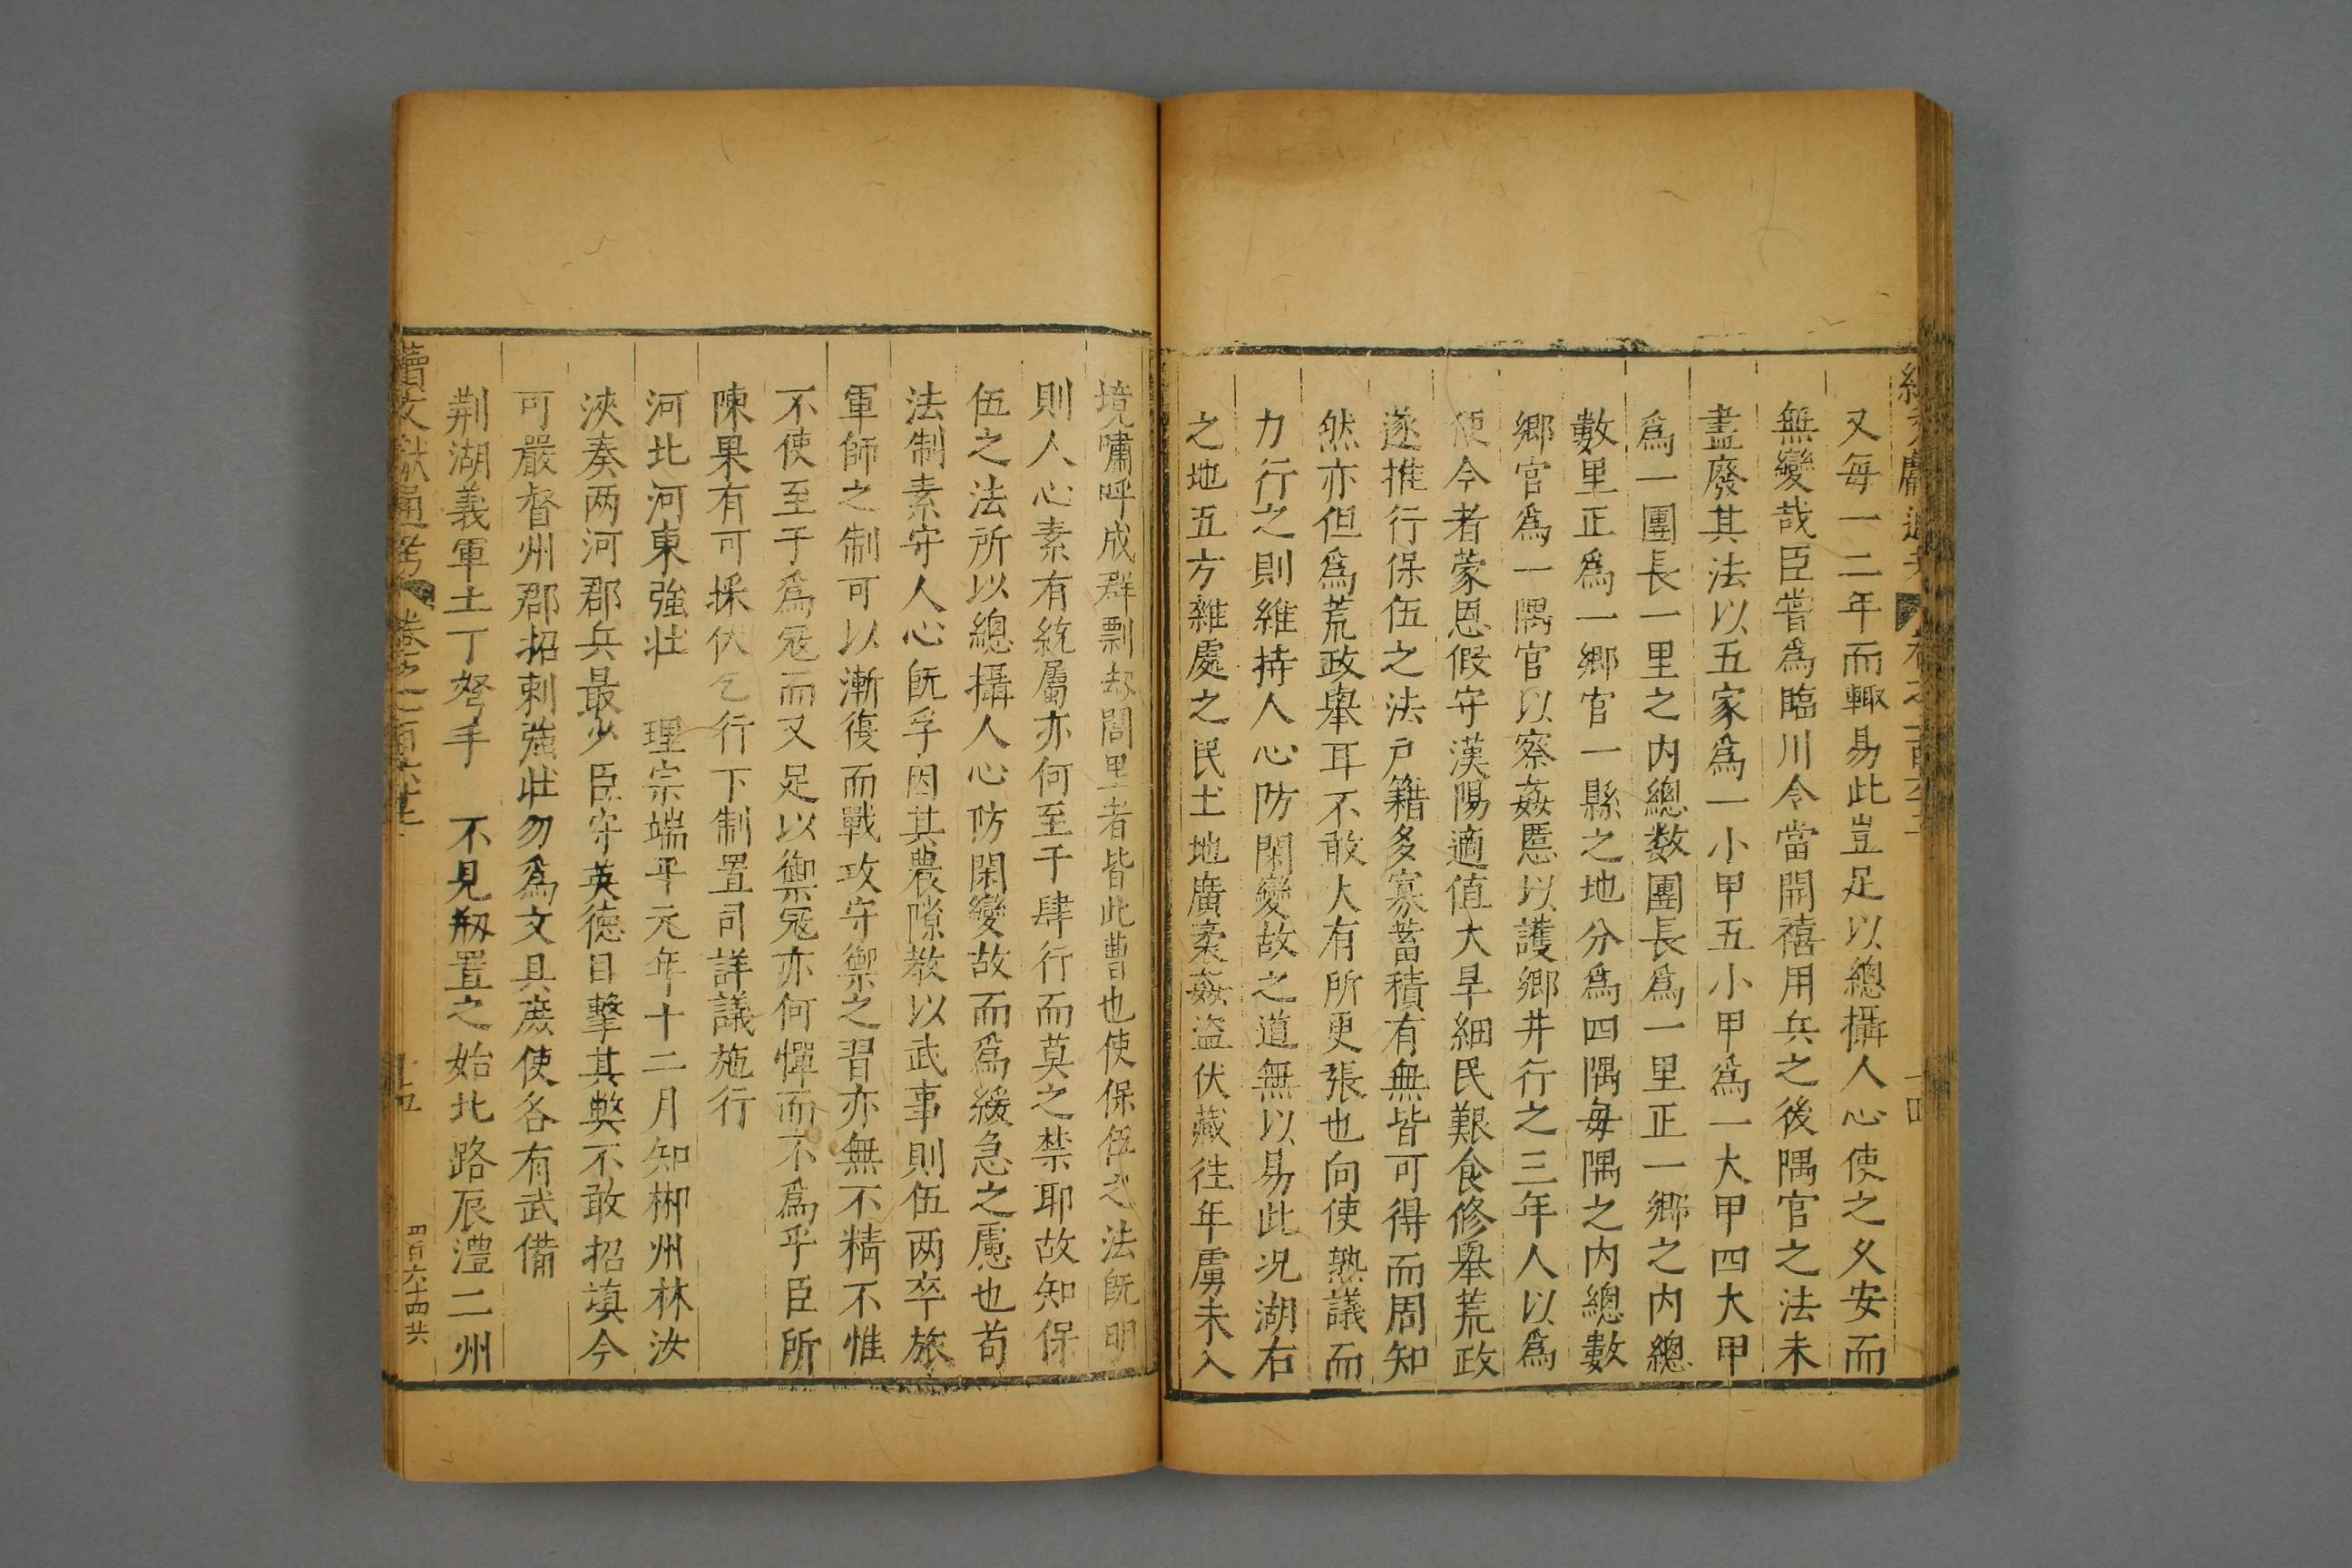 又每一二年而輙易此豈足以總攝人心使之久安而
無變哉臣甞爲臨川令當開禧用兵之後隅官之法未
盡廢其法以五家爲一小甲五小甲爲一大甲四大甲
爲一團長一里之内總数團長爲一里正一鄉之内總
數里正爲一鄉官一縣之地分爲四隅每隅之内總數
鄉官爲一隅官以察姦慝以護鄉井行之三年人以爲
便今者蒙恩假守漢陽適值大旱細民艱食修舉荒政
遂推行保伍之法戶籍多寡蓄積有無皆可得而周知
然亦但爲荒政舉耳不敢大有所更張也向使熟議而
力行之則維持人心防閑變故之道無以易此况湖右
之地五方雜處之民土地廣袤姦盜伏藏往年虜未入
境嘯呼成群剽刼閭里者皆此曹也使保伍之法旣明
則人心素有統屬亦何至于肆行而莫之禁耶故知保
伍之法所以總攝人心防閑變故而爲緩急之慮也苟
法制素守人心旣孚因其農隙教以武事則伍两卒旅
軍師之制可以漸復而戰攻守禦之習亦無不精不惟
不使至于爲冦而又足以禦冦亦何憚而不爲乎臣所
陳果有可採伏乞行下制置司詳議施行
河北河東強壯 理宗端平元年十二月知郴州林汝
浹奏两河郡兵最少臣守英德目擊其弊不敢招塡今
可嚴督州郡招刺強壯勿爲文具庶使各有武備
荆湖義軍土丁弩手 不見刱置之始北路辰澧二州
續文獻通考 卷之一百六十 十五
四百六十四共